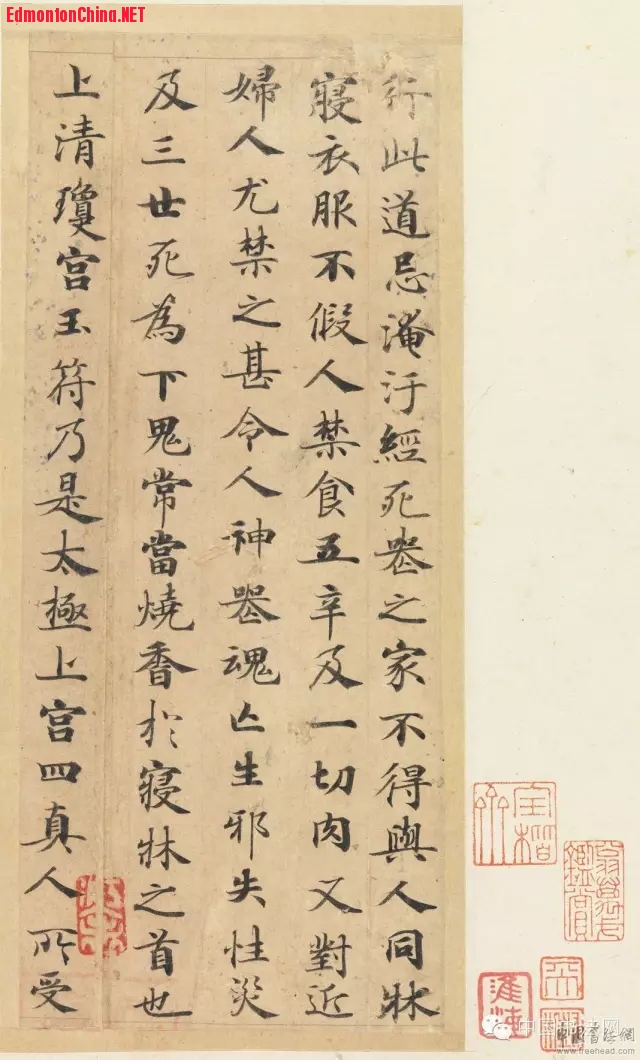 EdmontonChina.NET
行此道忌淹汙經死器之家不得與人同牀
寢衣服不假人禁食五辛及一切肉又對近
婦人尤禁之甚令人神器魂亡生邪失性災
及三世死為下鬼常當燒香於寢牀之首也
上清瓊宮玉符乃是太極上宮四真人所受
中国书法网
www.freehead.com